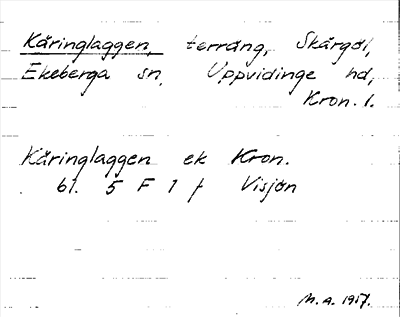 Käringlaggen, terräng, Skårgöl,
Ekeberga sn, Uppvidinge hd,
Kron. l.
Käringlaggen ek Kron.
61. 5 F 1 f Visjön
M. A. 1917.